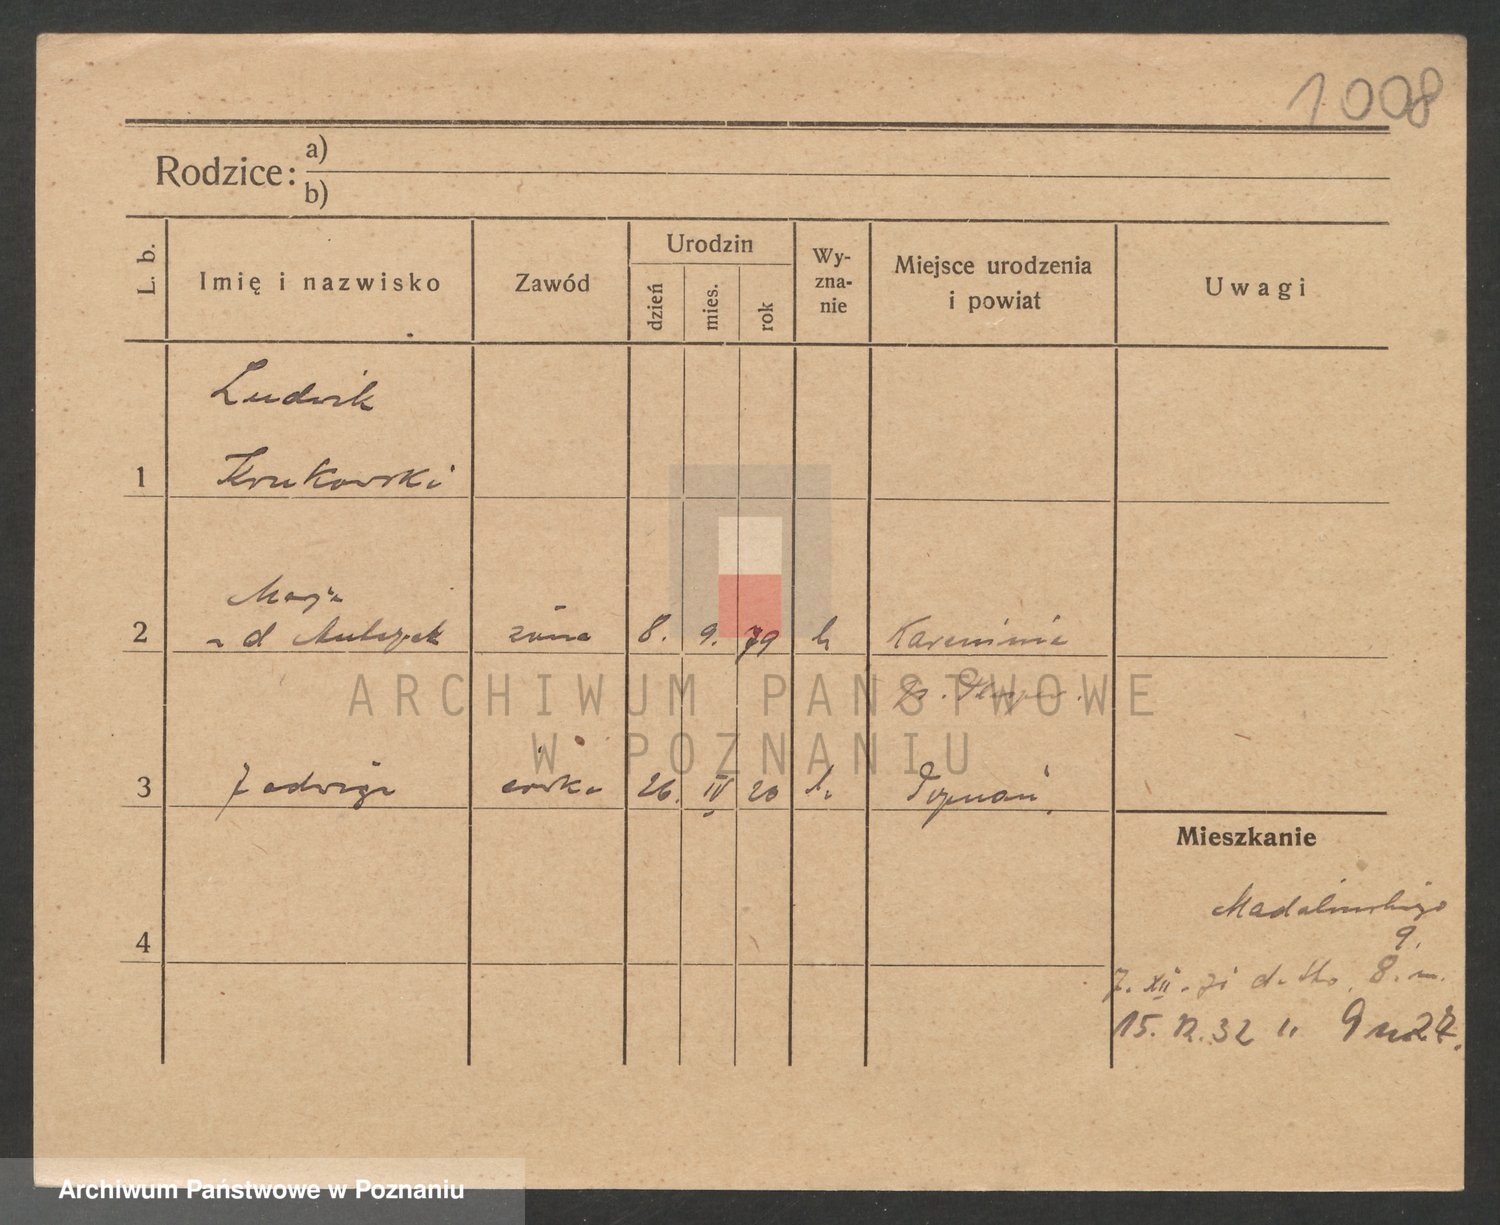 1008
Rodzice: a)
b)
L. b.
Imię i nazwisko
Zawód
Urodzin
dzień
mies.
rok
Wy-
zna-
nie
Miejsce urodzenia
i powiat
Uwagi
Ludwik
1 Krukowski
Marja
2 żona 8. 9. 79 k.
3 Jadwiga córka 26. IV 20 k. Poznań.
4
Mieszkanie
Madalińskiego
9.
7. XII. 31 8. m.
15. 12. 32 " 9 m 27.
ARCHIWUM PAŃSTWOWE
W POZNANIU
Archiwum Państwowe w Poznaniu